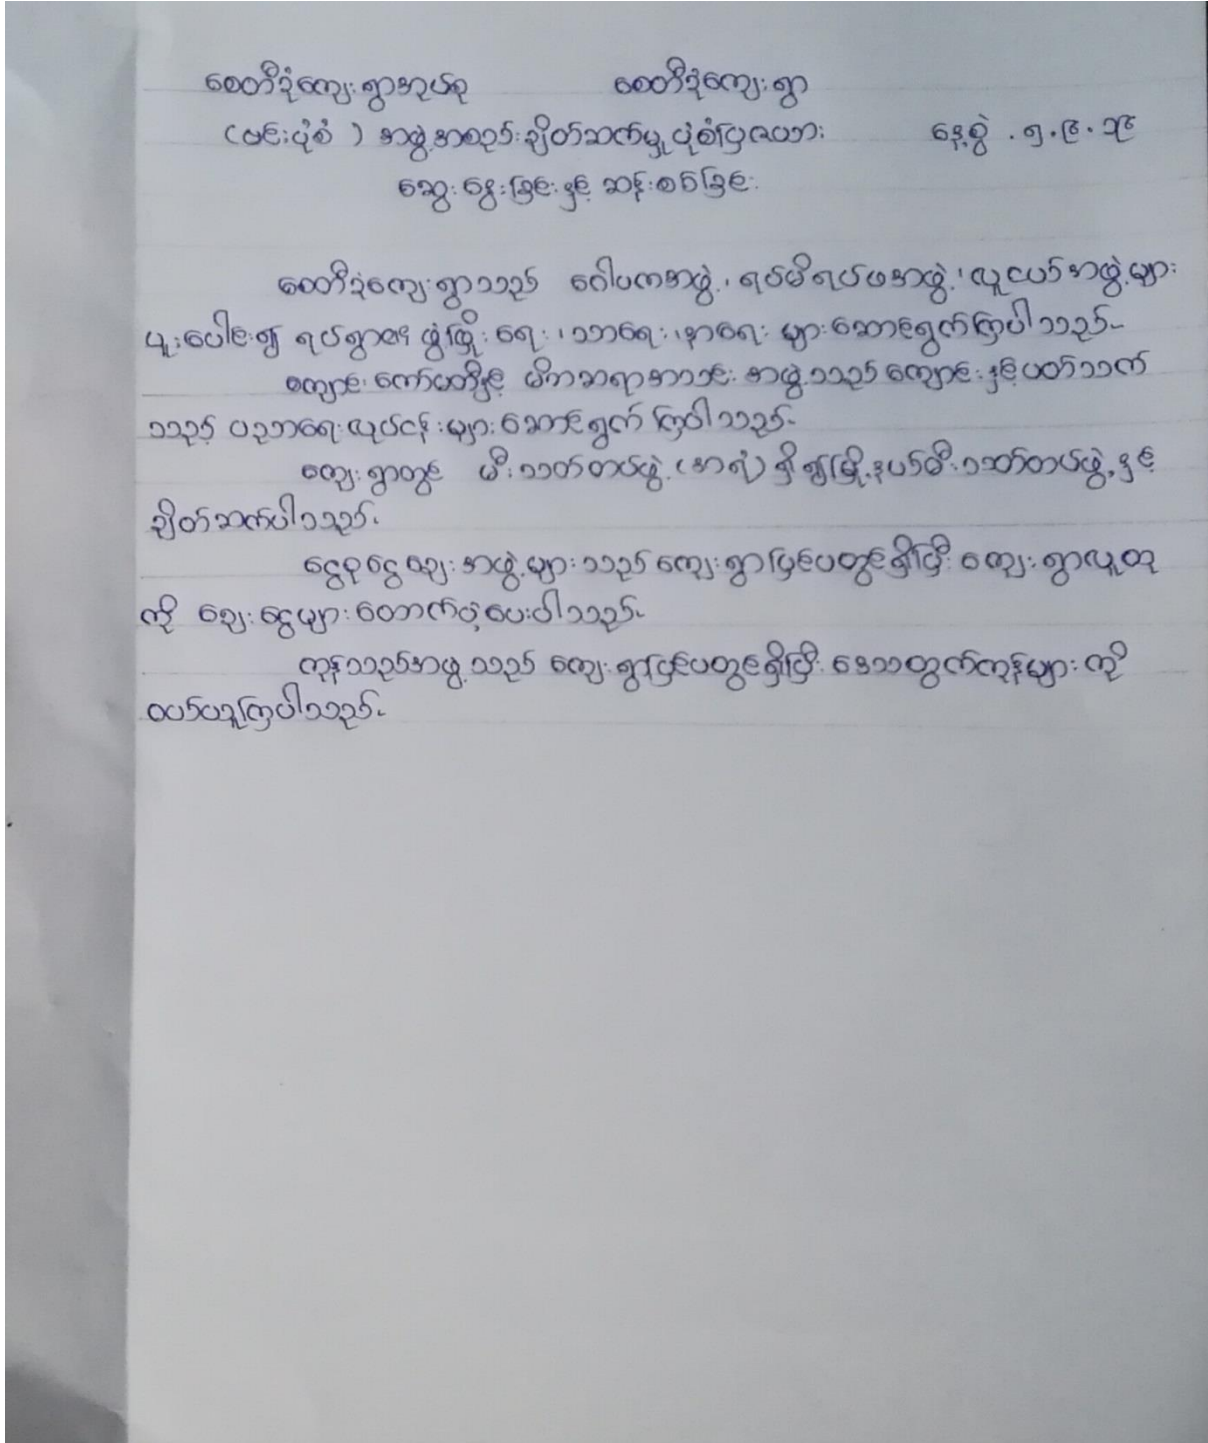 စေတီဒုံကျေးရွာအုပ်စု စေတီဒုံကျေးရွာ
(ဗင်းပုံစံ ) အဖွဲ့အစည်းချိတ်ဆက်မှုပုံစံပြဇယား နေ့စွဲ . ၅.၉.၁၉
ဆွေးနွေးခြင်းနှင့် ဆန်းစစ်ခြင်း
စေတီဒုံကျေးရွာသည် ဂေါပကအဖွဲ့၊ ရပ်မိရပ်ဖအဖွဲ့၊ လူငယ်အဖွဲ့များ
ပူးပေါင်း၍ ရပ်ရွာဖွံ့ဖြိုးရေး၊ သာရေး၊ နာရေး များဆောင်ရွက်ကြပါသည်။
ကျောင်းကော်မတီနှင့် မိဘဆရာအသင်း အဖွဲ့သည် ကျောင်းနှင့်ပတ်သက်
သည့် ပညာရေးလုပ်ငန်းများ ဆောင်ရွက်ကြပါသည်။
ကျေးရွာတွင် မီးသတ်တပ်ဖွဲ့ (အရံ) ရှိ၍ မြို့နယ်မီးသတ်တပ်ဖွဲ့နှင့်
ချိတ်ဆက်ပါသည်။
ငွေစုငွေချေးအဖွဲ့များသည် ကျေးရွာပြင်ပတွင်ရှိပြီး ကျေးရွာလူထု
ကို ချေးငွေများထောက်ပံ့ပေးပါသည်။
ကုန်သည်အဖွဲ့သည် ကျေးရွာပြင်ပတွင်ရှိပြီး ဒေသထွက်ကုန်များကို
ဝယ်ယူကြပါသည်။